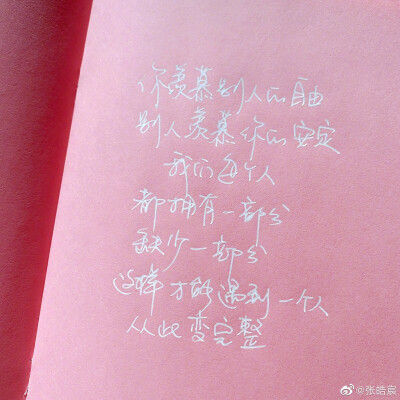 你羡慕别人的自由
别人羡慕你的安定
我们每个人
都拥有一部分
缺少一部分
这样才能遇到一个人
从此变完整
@张皓宸